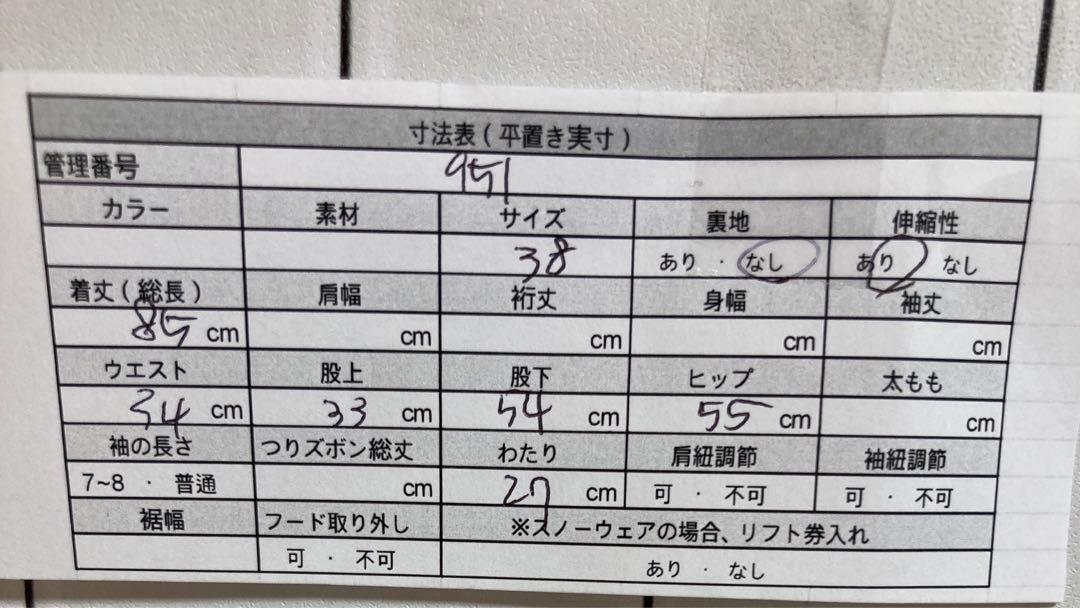 寸法表(平置き実寸)
管理番号 951
カラー 素材 サイズ 裏地 伸縮性
38 あり ・ なし あり なし
着丈(総長) 肩幅 裄丈 身幅 袖丈
85 cm cm cm cm cm
ウエスト 股上 股下 ヒップ 太もも
34 cm 33 cm 54 cm 55 cm cm
袖の長さ つりズボン総丈 わたり 肩紐調節 袖紐調節
7~8 ・ 普通 cm 27 cm 可 ・ 不可 可 ・ 不可
裾幅 フード取り外し ※スノーウェアの場合、リフト券入れ
可 ・ 不可 あり ・ なし